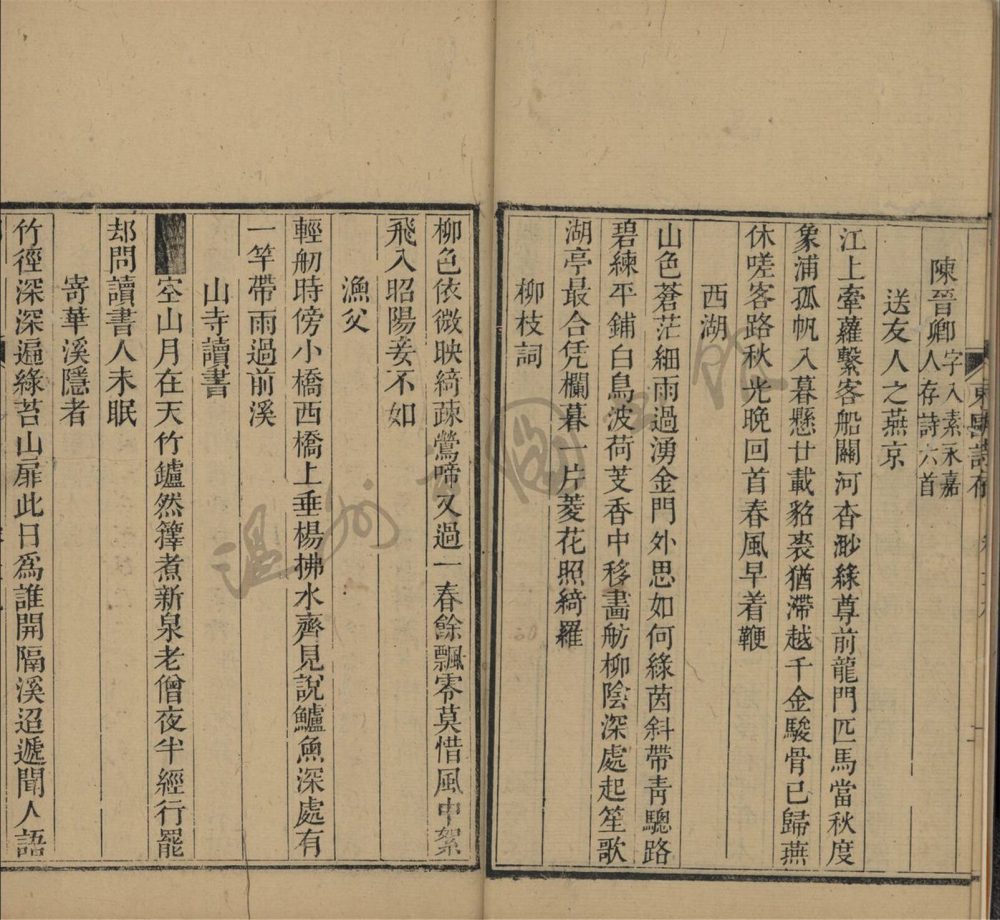 東甌詩存
陳晉卿字入素永嘉
人存詩六首
送友人之燕京
江上牽蘿繫客船關河杳渺綠尊前龍門匹馬當秋度
象浦孤帆入暮懸廿載貂裘猶滯越千金駿骨已歸燕
休嗟客路秋光晚回首春風早着鞭
西湖
山色蒼茫細雨過湧金門外思如何綠茵斜帶靑驄路
碧練平鋪白鳥波荷芰香中移畵舫柳陰深處起笙歌
湖亭最合凭欄暮一片菱花照綺羅
柳枝詞
柳色依微映綺疎鶯啼又過一春餘飄零莫惜風中絮
飛入昭陽妾不如
漁父
輕舠時傍小橋西橋上垂楊拂水齊見說鱸魚深處有
一竿帶雨過前溪
山寺讀書
空山月在天竹鑪然籜煮新泉老僧夜半經行罷
却問讀書人未眠
寄華溪隱者
竹徑深深遍綠苔山扉此日爲誰開隔溪迢遞聞人語
溫州圖書館